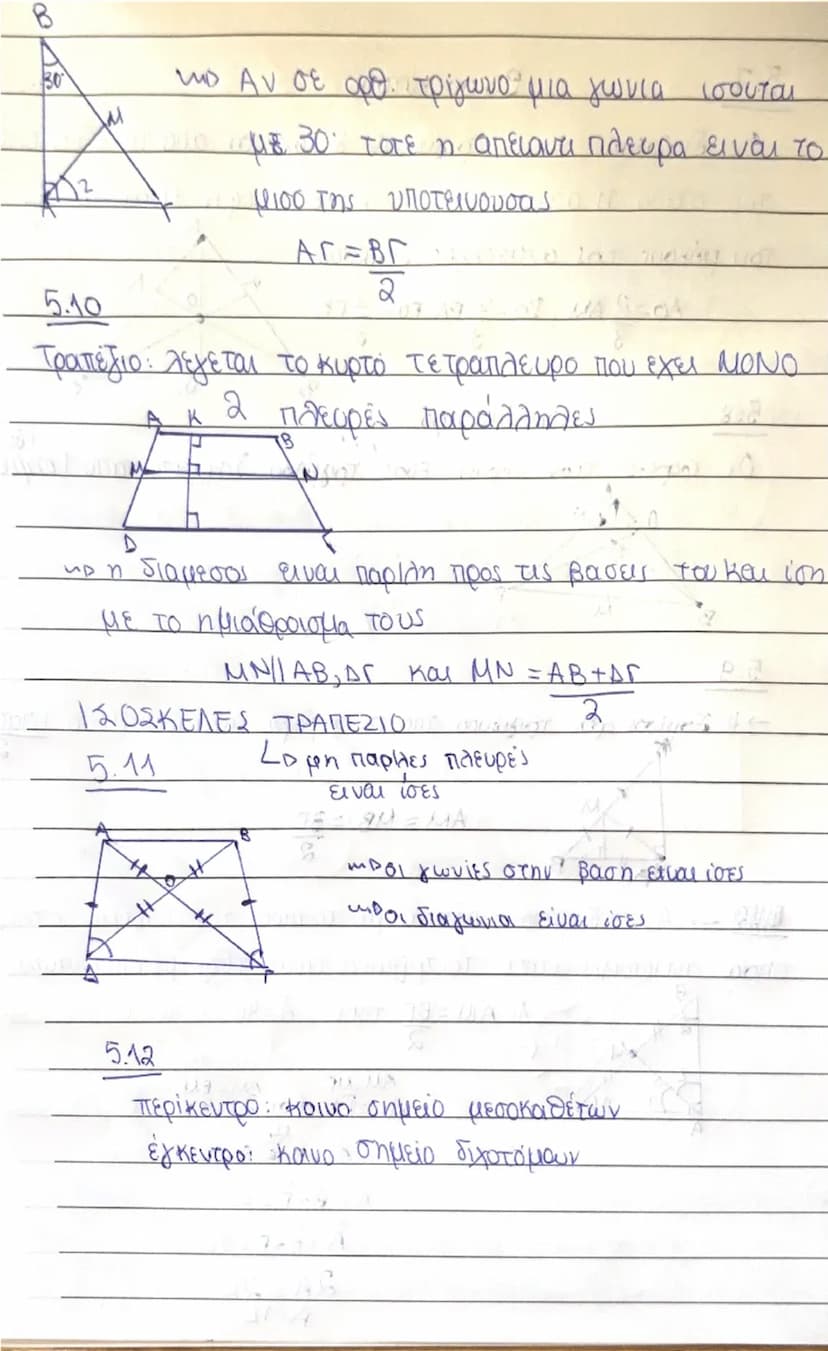 B
30°
M
A 2 Γ
Αν σε ορθ. τρίγωνο μια γωνια ισουται
με 30° τοτε η απεναντι πλευρα ειναι το
μισο της υποτεινουσας
ΑΓ = ΒΓ
2
5.10
Τραπέζιο: λέγεται το κυρτό τετράπλευρο που εχει ΜΟΝΟ
2 πλευρές παράλληλες
A K B
M N
D Γ
η διαμεσος ειναι παρ/λη προς τις βασεις του και ίση
με το ημιάθροισμα τους
MN//AB,ΔΓ και MN = AB+ΔΓ
2
ΙΣΟΣΚΕΛΕΣ ΤΡΑΠΕΖΙΟ
5.11
μη παρ/λες πλευρές
ειναι ίσες
A B
O
Δ Γ
οι γωνίες στην βαση είναι ίσες
οι διαγωνιοι είναι ίσες
5.12
περίκεντρο: κοινο σημείο μεσοκαθέτων
έγκεντρο: κοινο σημείο διχοτόμων